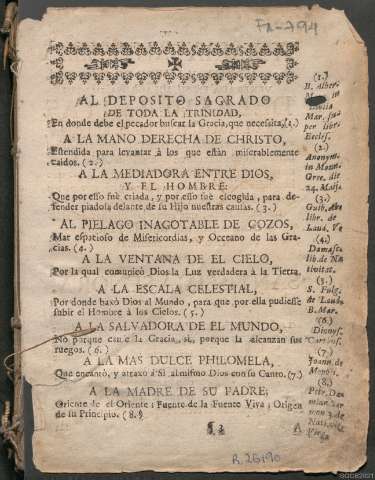 Fa-794
AL DEPOSITO SAGRADO
DE TODA LA TRINIDAD,
En donde debe el pecador buscar la Gracia, que necesita. (1.)
A LA MANO DERECHA DE CHRISTO,
Estendida para levantar à los que estàn miserablemente
caidos. (2.)
A LA MEDIADORA ENTRE DIOS,
Y EL HOMBRE:
Que por esso fue criada, y por esso fue escogida, para de-
fender piadosa delante de su Hijo nuestras causas. (3.)
AL PIELAGO INAGOTABLE DE GOZOS,
Mar espacioso de Misericordias, y Occeano de las Gra-
cias. (4.)
A LA VENTANA DE EL CIELO,
Por la qual comunicò Dios la Luz verdadera à la Tierra.
A LA ESCALA CELESTIAL,
Por donde baxò Dios al Mundo, para que por ella pudiesse
subir el Hombre à los Cielos. (5.)
A LA SALVADORA DE EL MUNDO,
No porque cause la Gracia, si, porque la alcanzan sus
ruegos. (6.)
A LA MAS DULCE PHILOMELA,
Que encantò, y atraxo à Si al mismo Dios con su Canto. (7.)
A LA MADRE DE SU PADRE;
Oriente de el Oriente; Fuente de la Fuente Viva; Origen
de su Principio. (8.)
(1.)
B. Alber.
in
Mar. sup
per libr.
Eccles.
(2.)
Anonym.
in
Græc. die
24. Maij.
(3.)
libr. de
Laud. Ve
(4.)
Damasc.
lib. de Na
tivitat.
(5.)
S. Fulg.
de Laud.
B. Mar.
(6.)
Dionys.
(7.)
Joann. de
(8.)
Petr. Da
mian. Ser
mon 3. de
R. 26190